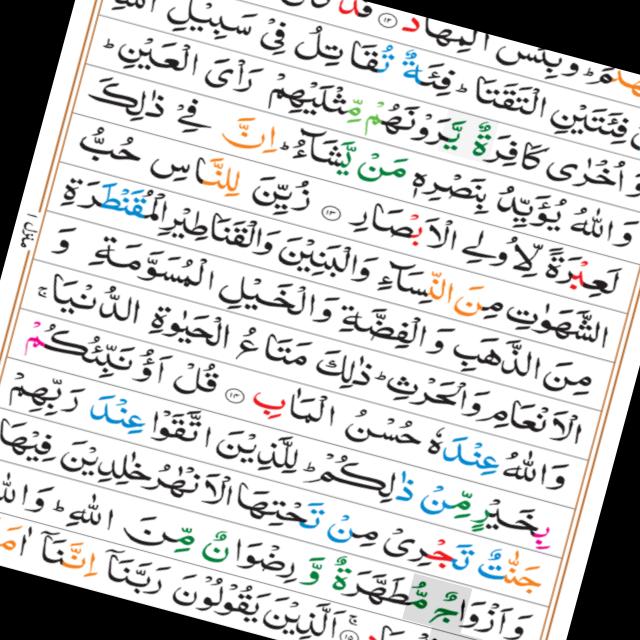 وَبِئْسَ الْمِهَادُ ۝١٢ قَدْ
فِئَتَيْنِ الْتَقَتَا ؕ فِئَةٌ تُقَاتِلُ فِىْ سَبِيْلِ اللّٰهِ
وَ اُخْرٰى كَافِرَةٌ يَّرَوْنَهُمْ مِّثْلَيْهِمْ رَاْىَ الْعَيْنِ ؕ
وَاللّٰهُ يُؤَيِّدُ بِنَصْرِهٖ مَنْ يَّشَآءُ ؕ اِنَّ فِىْ ذٰلِكَ
لَعِبْرَةً لِّاُولِى الْاَبْصَارِ ۝١٣ زُيِّنَ لِلنَّاسِ حُبُّ
الشَّهَوٰتِ مِنَ النِّسَآءِ وَالْبَنِيْنَ وَالْقَنَاطِيْرِ الْمُقَنْطَرَةِ
مِنَ الذَّهَبِ وَ الْفِضَّةِ وَ الْخَيْلِ الْمُسَوَّمَةِ وَ
الْاَنْعَامِ وَالْحَرْثِ ؕ ذٰلِكَ مَتَاعُ الْحَيٰوةِ الدُّنْيَا ۚ
وَاللّٰهُ عِنْدَهٗ حُسْنُ الْمَاٰبِ ۝١٤ قُلْ اَؤُنَبِّئُكُمْ
بِخَيْرٍ مِّنْ ذٰلِكُمْ ؕ لِلَّذِيْنَ اتَّقَوْا عِنْدَ رَبِّهِمْ
جَنّٰتٌ تَجْرِىْ مِنْ تَحْتِهَا الْاَنْهٰرُ خٰلِدِيْنَ فِيْهَا
وَ اَزْوَاجٌ مُّطَهَّرَةٌ وَّ رِضْوَانٌ مِّنَ اللّٰهِ ؕ وَاللّٰهُ
۝١٥ اَلَّذِيْنَ يَقُوْلُوْنَ رَبَّنَآ اِنَّنَآ
منزل ١